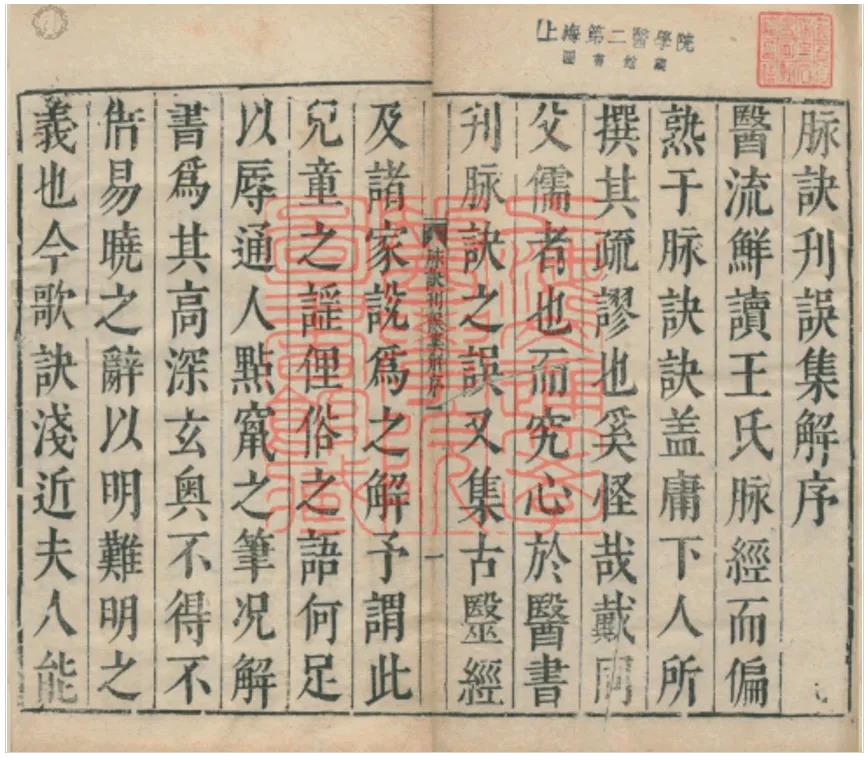 上海第二醫學院
圖書館藏
脉訣刋誤集解序
醫流鮮讀王氏脉經而偏
熟于脉訣訣盖庸下人所
撰其疏謬也奚怪哉戴同
父儒者也而究心於醫書
刋脉訣之誤又集古毉經
脉訣刋誤集解序
一
及諸家說爲之解予謂此
兒童之謡俚俗之語何足
以辱通人點竄之筆况解
書爲其高深玄奥不得不
借易曉之辭以明難明之
義也今歌訣淺近夫人能